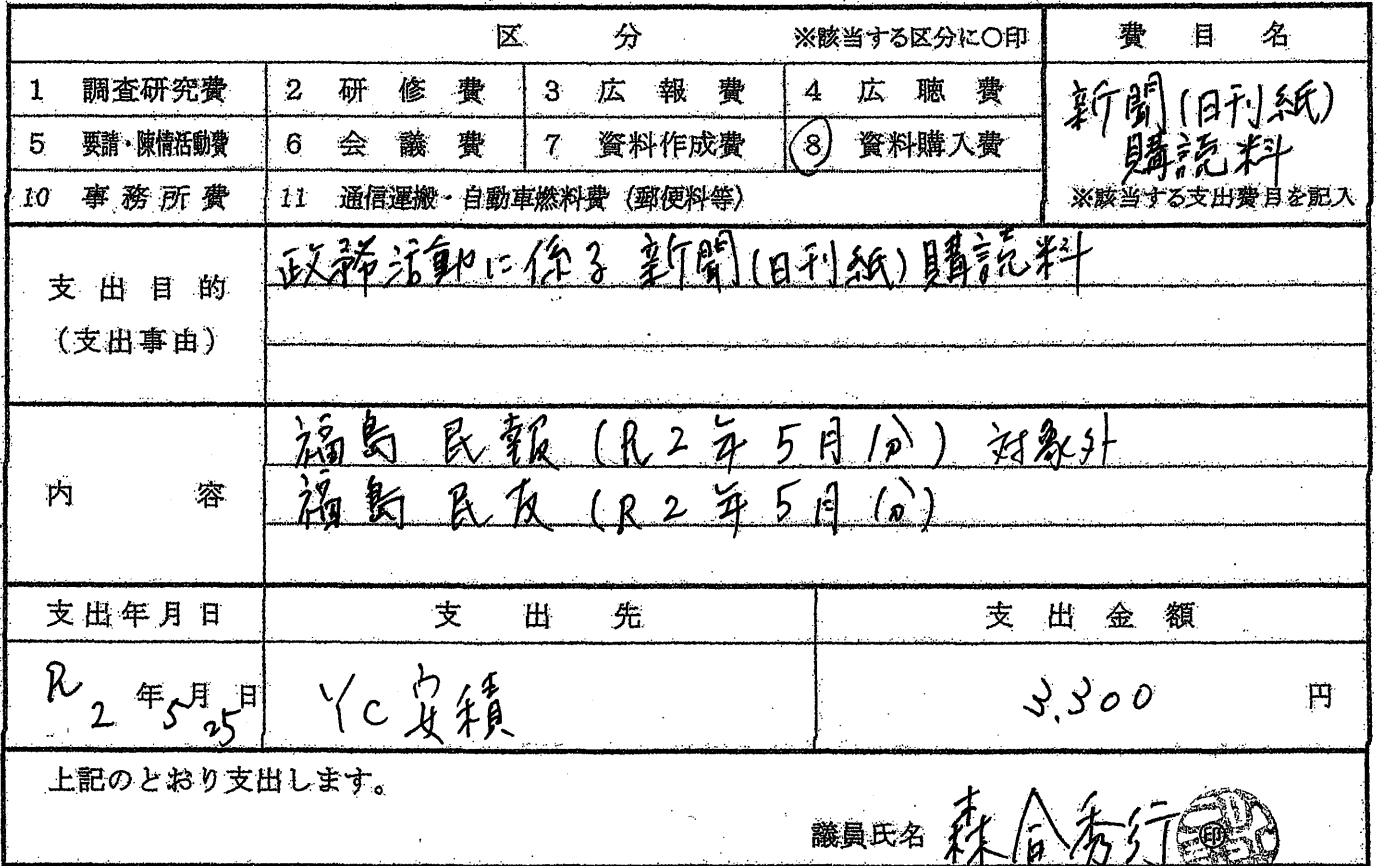 区分 ※該当する区分に○印 費目名
1 調査研究費 2 研修費 3 広報費 4 広聴費
新聞(日刊紙)
5 要請・陳情活動費 6 会議費 7 資料作成費 8 資料購入費
購読料
10 事務所費 11 通信運搬・自動車燃料費(郵便料等) ※該当する支出費目を記入
支出目的
(支出事由)
政務活動に係る新聞(日刊紙)購読料
内容
福島民報(R2年5月分)対象外
福島民友(R2年5月分)
支出年月日 支出先 支出金額
R2年5月25日 YC安積 3,300円
上記のとおり支出します。
議員氏名 森合秀行 印